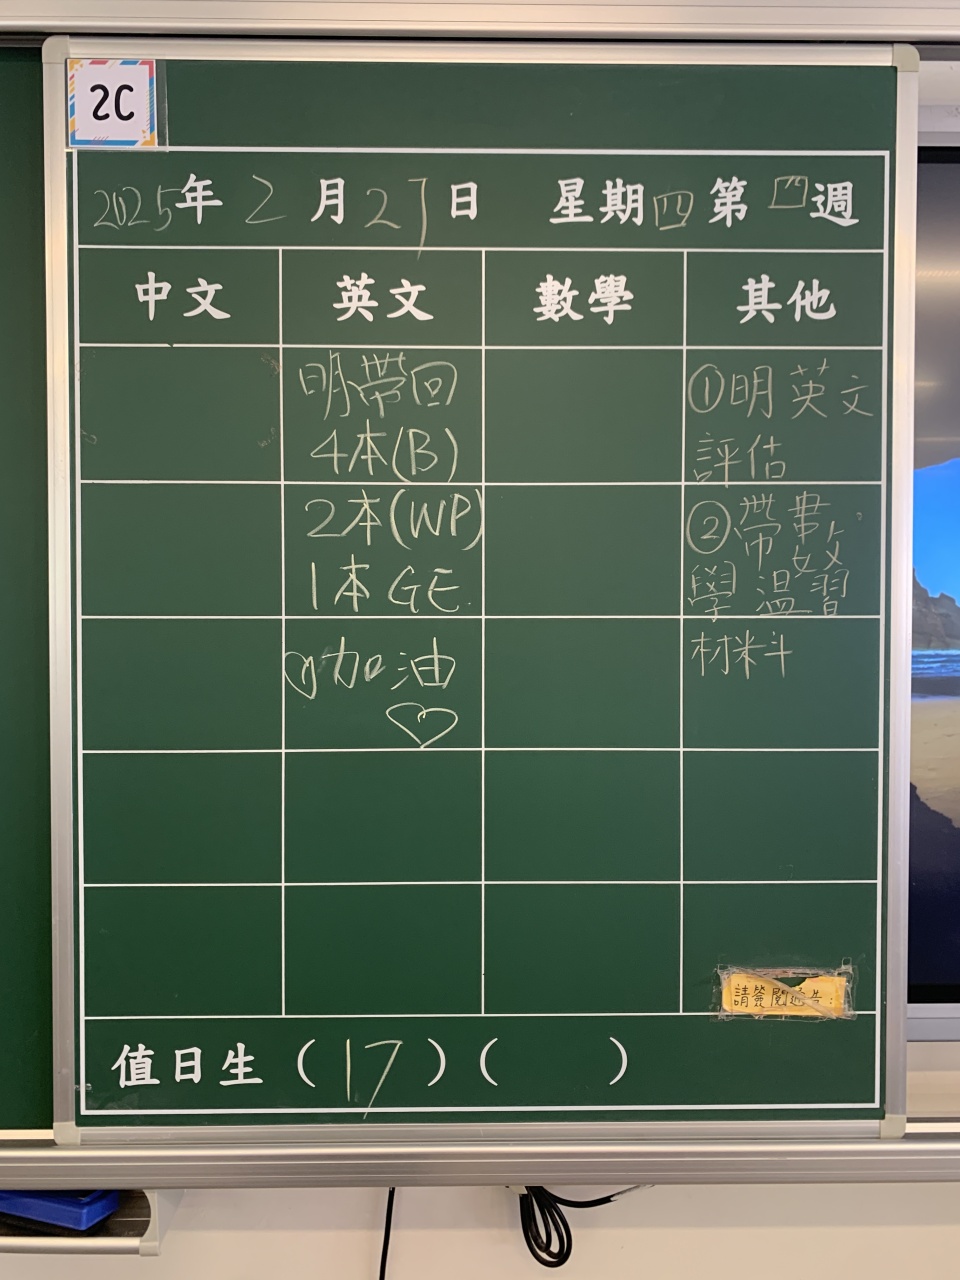 2C
2025年2月27日 星期四第四週
中文 英文 數學 其他
明帶回
4本(B)
2本(WP)
1本GE.
加油
①明英文
評估
②帶書、數
學溫習
材料
請簽閱通告:
值日生 (17) ( )